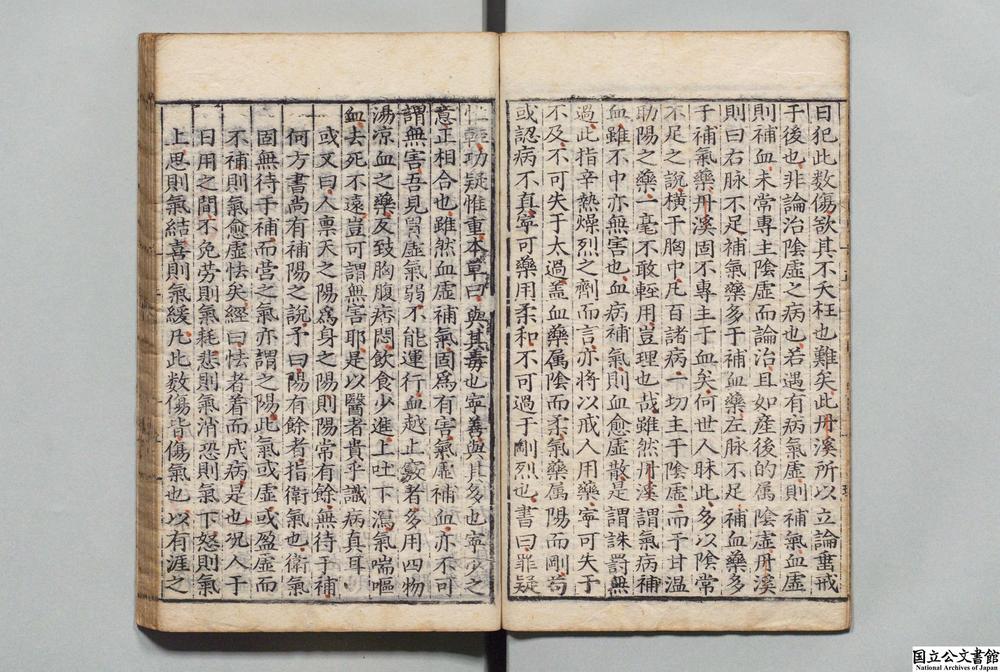 曰犯此数傷欲其不夭枉也難矣此丹溪所以立論垂戒
于後也非論治陰虚之病也若遇有病氣虚則補氣血虚
則補血未常専主陰虚而論治且如産後的属陰虚丹溪
則曰右脉不足補氣藥多于補血藥左脉不足補血藥多
于補氣藥丹溪固不専主于血矣何世人昧此多以陰常
不足之說横于胸中凡百諸病一切主于陰虚而于甘温
助陽之藥一毫不敢輕用豈理也㢤雖然丹溪謂氣病補
血雖不中亦無害也血病補氣則血愈虚散是謂誅罰無
過此指辛熱燥烈之劑而言亦將以戒人用藥寧可失于
不及不可失于太過盖血藥属陰而柔氣藥属陽而剛苟
或認病不真寧可藥用柔和不可過于剛烈也書曰罪疑
惟輕功疑惟重本草曰與其毒也寧善與其多也寧少之
意正相合也雖然血虚補氣固爲有害氣虚補血亦不可
謂無害吾見胃虚氣弱不能運行血越上竅者多用四物
湯凉血之藥反致胸腹痞悶飲食少進上吐下瀉氣喘嘔
血去死不遠豈可謂無害耶是以醫者貴乎識病真耳
或又曰人禀天之陽爲身之陽則陽常有餘無待于補
何方書尚有補陽之說予曰陽有餘者指衛氣也衛氣
固無待于補而營之氣亦謂之陽此氣或虚或盈虚而
不補則氣愈虚怯矣經曰怯者着而成病是也况人于
日用之間不免勞則氣耗悲則氣消恐則氣下怒則氣
上思則氣結喜則氣緩凡此数傷皆傷氣也以有涯之
国立公文書館
National Archives of Japan